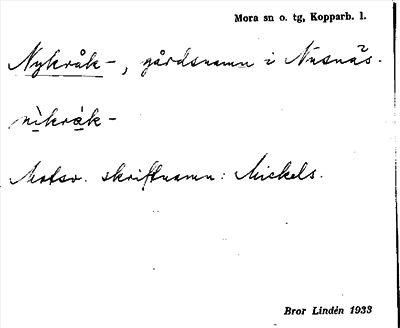 Mora sn o. tg, Kopparb. l.
Nykråk-, gårdsnamn i Nusnäs.
nìkràk-
Motsv. skriftnamn: Mickels.
Bror Lindén 1933